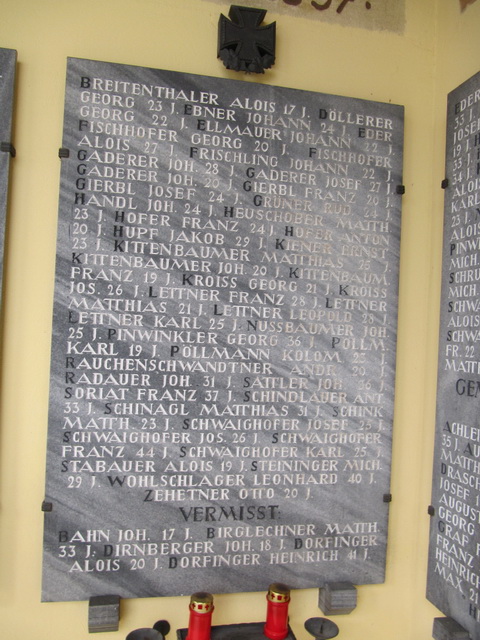 BREITENTHALER ALOIS 17 J. DÖLLERER
GEORG 23 J. EBNER JOHANN 24 J. EDER
GEORG 22 J. ELLMAUER JOHANN 22 J.
FISCHHOFER GEORG 20 J. FISCHHOFER
ALOIS 27 J. FRISCHLING JOHANN 22 J.
GADERER JOH. 28 J. GADERER JOSEF 27 J.
GADERER JOH. 20 J. GIERBL FRANZ 20 J.
GIERBL JOSEF 24 J. GRÜNER RUD. 24 J.
HANDL JOH. 24 J. HEUSCHOBER MATTH
23 J. HOFER FRANZ 24 J. HOFER ANTON
20 J. HUPF JAKOB 29 J. KIENER ERNST
23 J. KITTENBAUMER MATTHIAS 25 J.
KITTENBAUMER JOH. 20 J. KITTENBAUM
FRANZ 19 J. KROISS GEORG 21 J. KROISS
JOS. 26 J. LETTNER FRANZ 28 J. LETTNER
MATTHIAS 21 J. LETTNER LEOPOLD 23 J.
LETTNER KARL 25 J. NUSSBAUMER JOH.
25 J. PINWINKLER GEORG 36 J. PÖLLM.
KARL 19 J. PÖLLMANN KOLOM. 23 J.
RAUCHENSCHWANDTNER ANDR. 20 J.
RADAUER JOH. 31 J. SATTLER JOH. 36 J.
SORIAT FRANZ 37 J. SCHINDLAUER ANT.
33 J. SCHINAGL MATTHIAS 31 J. SCHINK
MATTH. 23 J. SCHWAIGHOFER JOSEF 25 J.
SCHWAIGHOFER JOS. 26 J. SCHWAIGHOFER
FRANZ 44 J. SCHWAIGHOFER KARL 25 J.
STABAUER ALOIS 19 J. STEININGER MICH.
29 J. WOHLSCHLAGER LEONHARD 40 J.
ZEHETNER OTTO 20 J.
VERMISST:
BAHN JOH. 17 J. BIRGLECHNER MATTH
33 J. DIRNBERGER JOH. 18 J. DORFINGER
ALOIS 20 J. DORFINGER HEINRICH 41 J.
EDER
33 J.
JOSEF
19 J.
33 J.
34 J.
ALOIS
KARL
23 J.
ALOIS
PINWI
MICH.
SCHRU
MICH.
SCHWA
ALOIS
SCHWA
FR. 22
MATTH
GEN
ACHLEI
35 J.
MATTH
DRASCH
JOSEF
AUGUST
GEORG
GRAF
FRANZ
MATTH
MAX. 21